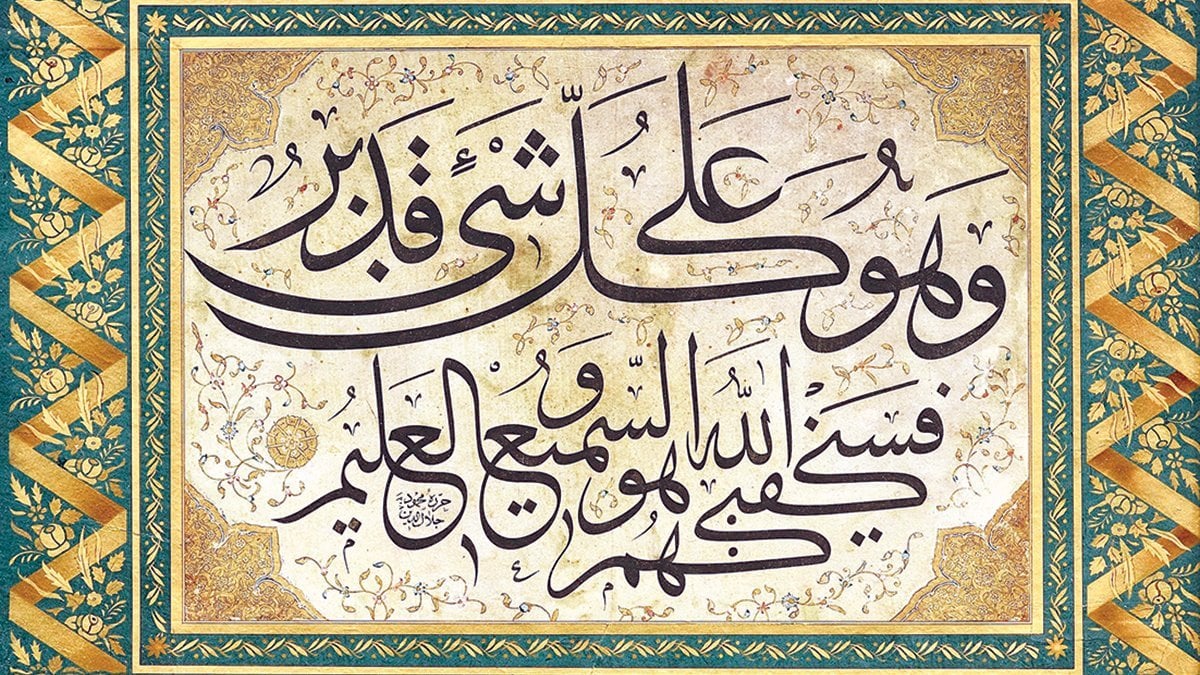 وَهُوَ عَلَى كُلِّ شَىْءٍ قَدِيرٌ
فَسَيَكْفِيكَهُمُ اللّٰهُ وَهُوَ السَّمِيعُ الْعَلِيمُ
حرره محمود
جلال الدين